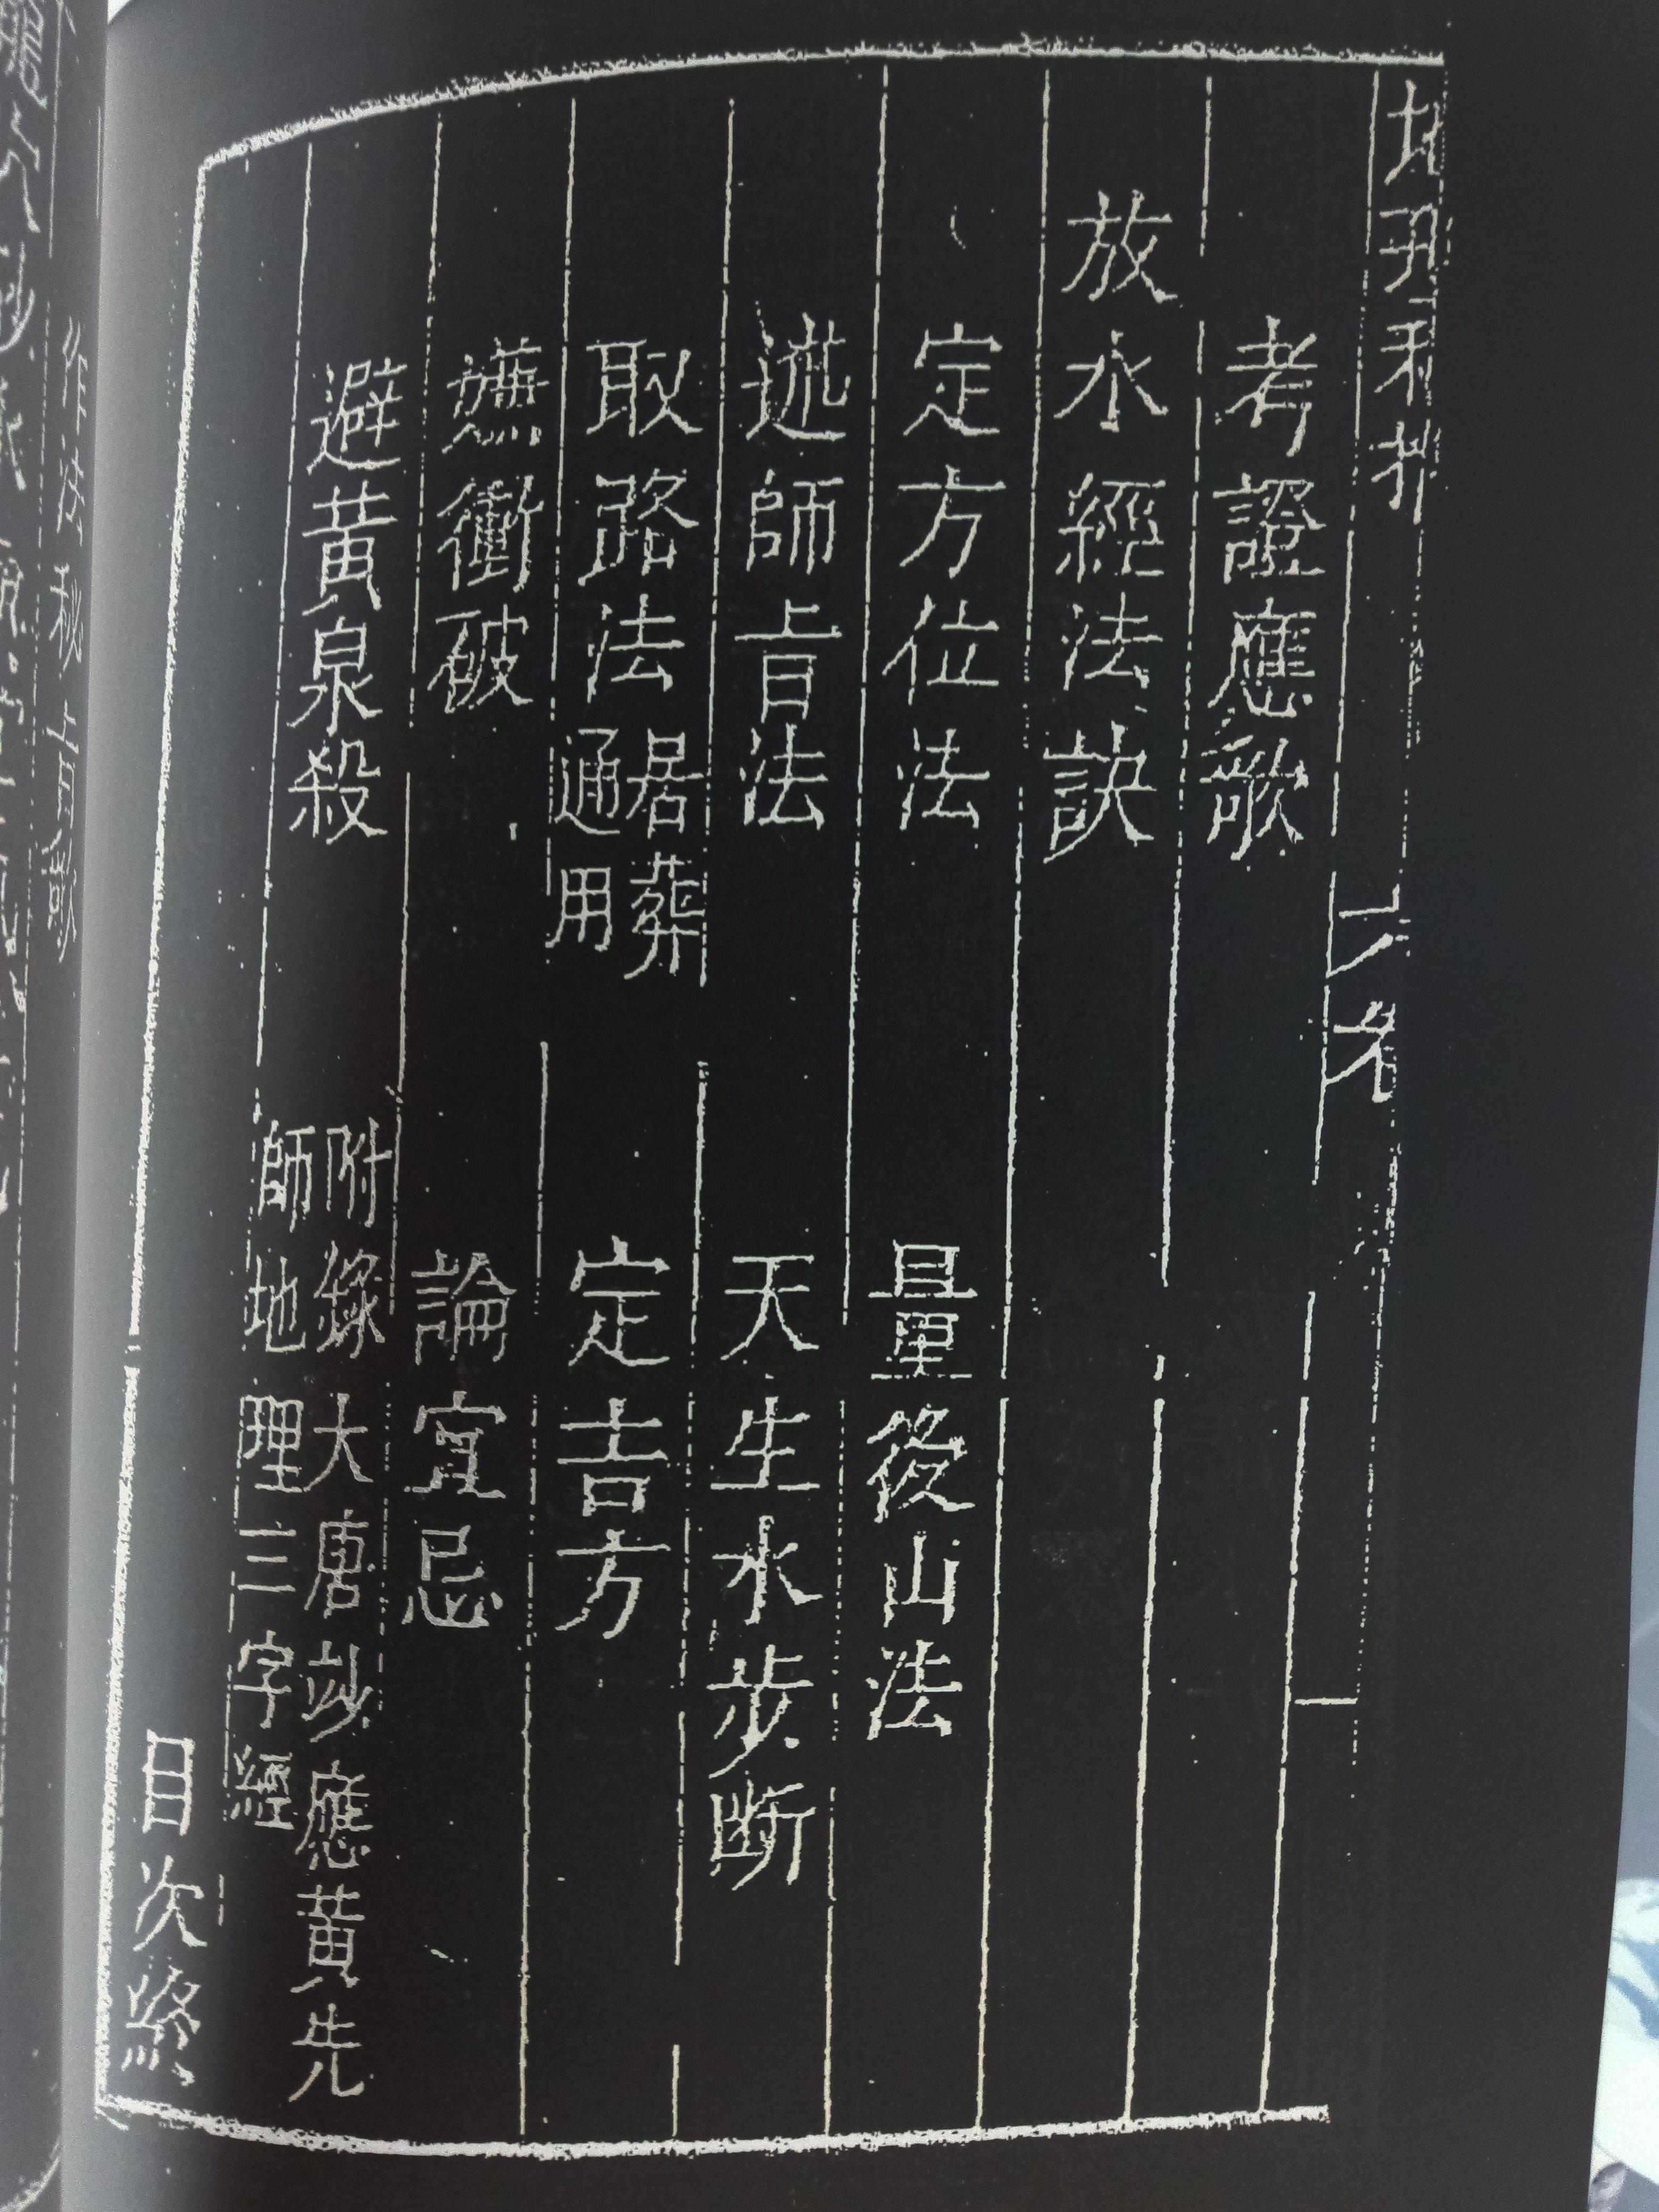 考證應歌
放水經法訣
定方位法　量後山法
述師旨法　天生水步断
取路法居葬通用　定吉方
嫌衝破　論宜忌
避黃泉殺　附錄大唐妙應黃先師地理三字經
目次終
作法秘旨歌